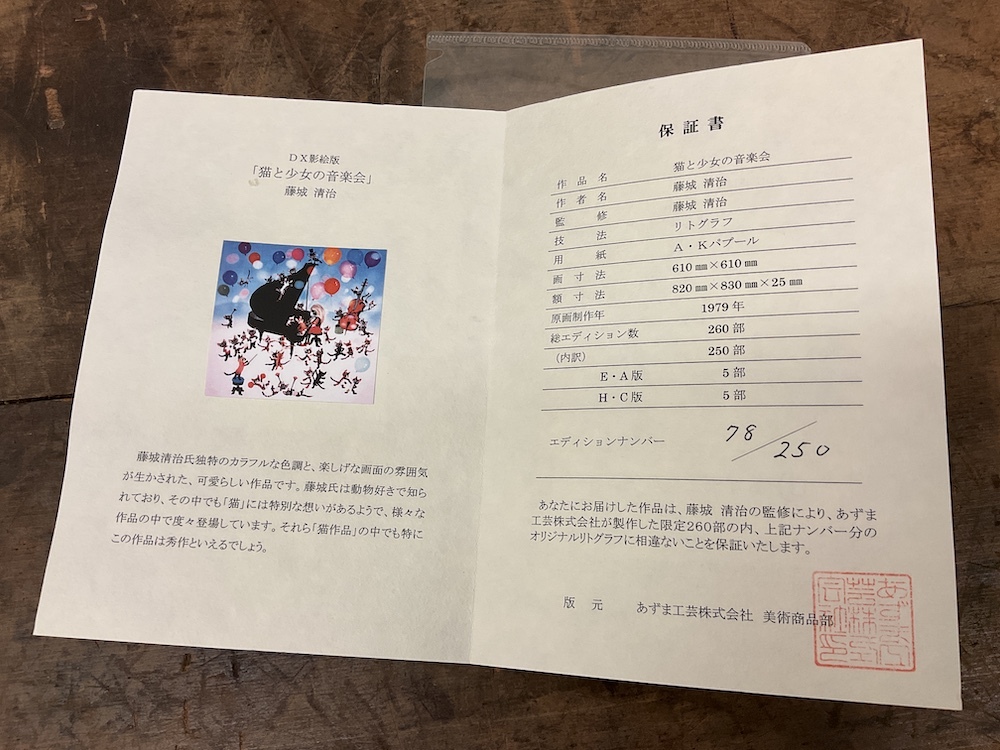 DX影絵版
「猫と少女の音楽会」
藤城 清治
藤城清治氏独特のカラフルな色調と、楽しげな画面の雰囲気
が生かされた、可愛らしい作品です。藤城氏は動物好きで知ら
れており、その中でも「猫」には特別な想いがあるようで、様々な
作品の中で度々登場しています。それら「猫作品」の中でも特に
この作品は秀作といえるでしょう。
保証書
作品名 猫と少女の音楽会
作者名 藤城 清治
監修 藤城 清治
技法 リトグラフ
用紙 A・Kパプール
画寸法 610㎜×610㎜
額寸法 820㎜×830㎜×25㎜
原画制作年 1979年
総エディション数 260部
(内訳) 250部
E・A版 5部
H・C版 5部
エディションナンバー 78/250
あなたにお届けした作品は、藤城 清治の監修により、あずま
工芸株式会社が製作した限定260部の内、上記ナンバー分の
オリジナルリトグラフに相違ないことを保証いたします。
版元 あずま工芸株式会社 美術商品部